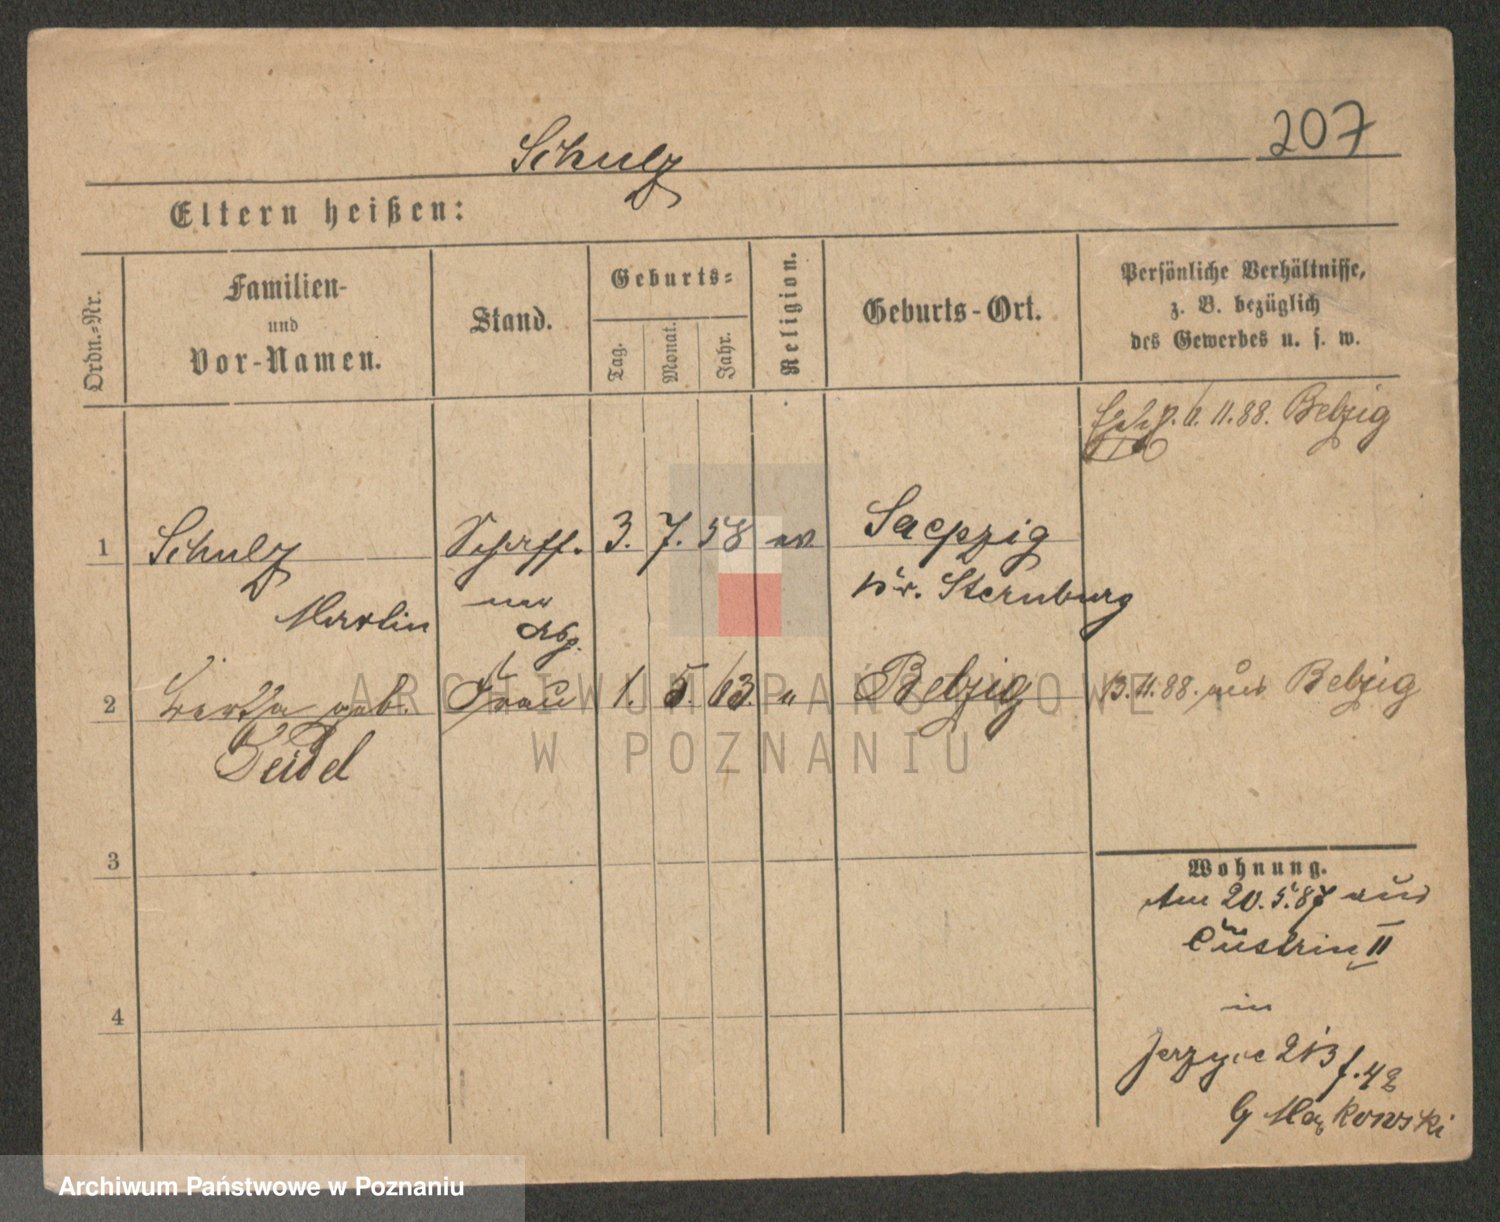 207
Schulz
Eltern heißen:
Ordn.=Nr.
Familien-
und
Vor-Namen.
Stand.
Geburts=
Tag.
Monat.
Jahr.
Religion.
Geburts-Ort.
Persönliche Verhältnisse,
z. B. bezüglich
des Gewerbes u. s. w.
11.88. Belzig
1 Schulz Schaff. 3. 7. 58 ev.
Martin
Kr. Sternburg
2 geb. Frau 1. 5. 63. " Belzig 13.11.88. aus Belzig
Seidel
3
4
Wohnung.
Am 20.5.87 aus
Cüstrin II
in
Jerzyce 213 f. 42
Makowski
ARCHIWUM PAŃSTWOWE
W POZNANIU
Archiwum Państwowe w Poznaniu